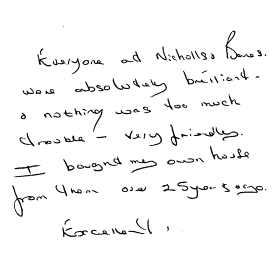 Everyone at Nicholls & Barnes.
were absolutely brilliant -
& nothing was too much
trouble - very friendly.
I bought my own house
from them over 25 years ago.
Excellent.